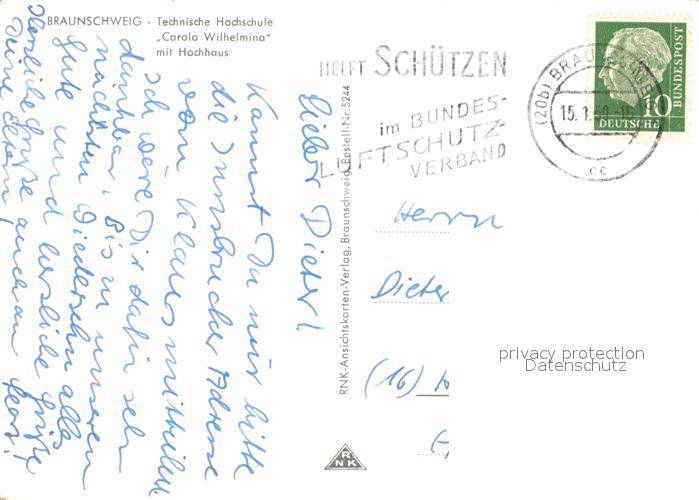 BRAUNSCHWEIG · Technische Hochschule
„Carolo Wilhelmina"
mit Hochhaus
Lieber Dieter!
Kannst Du mir bitte
die Innsbrucker Adresse
von Klaus mitteilen.
Ich wäre Dir dafür sehr
dankbar. Bis zu unserem
nächsten Wiedersehn alles
Gute und herzliche Grüße
Herzliche Grüße auch an
Deine Eltern
RNK-Ansichtskarten-Verlag, Braunschweig, Bestell-Nr. 5244
RNK
HELFT SCHÜTZEN
im BUNDES-
LUFTSCHUTZ-
VERBAND
(20b) BRAUNSCHWEIG
15.1.60
cc
10
DEUTSCHE
BUNDESPOST
Herrn
Dieter
(16)
privacy protection
Datenschutz